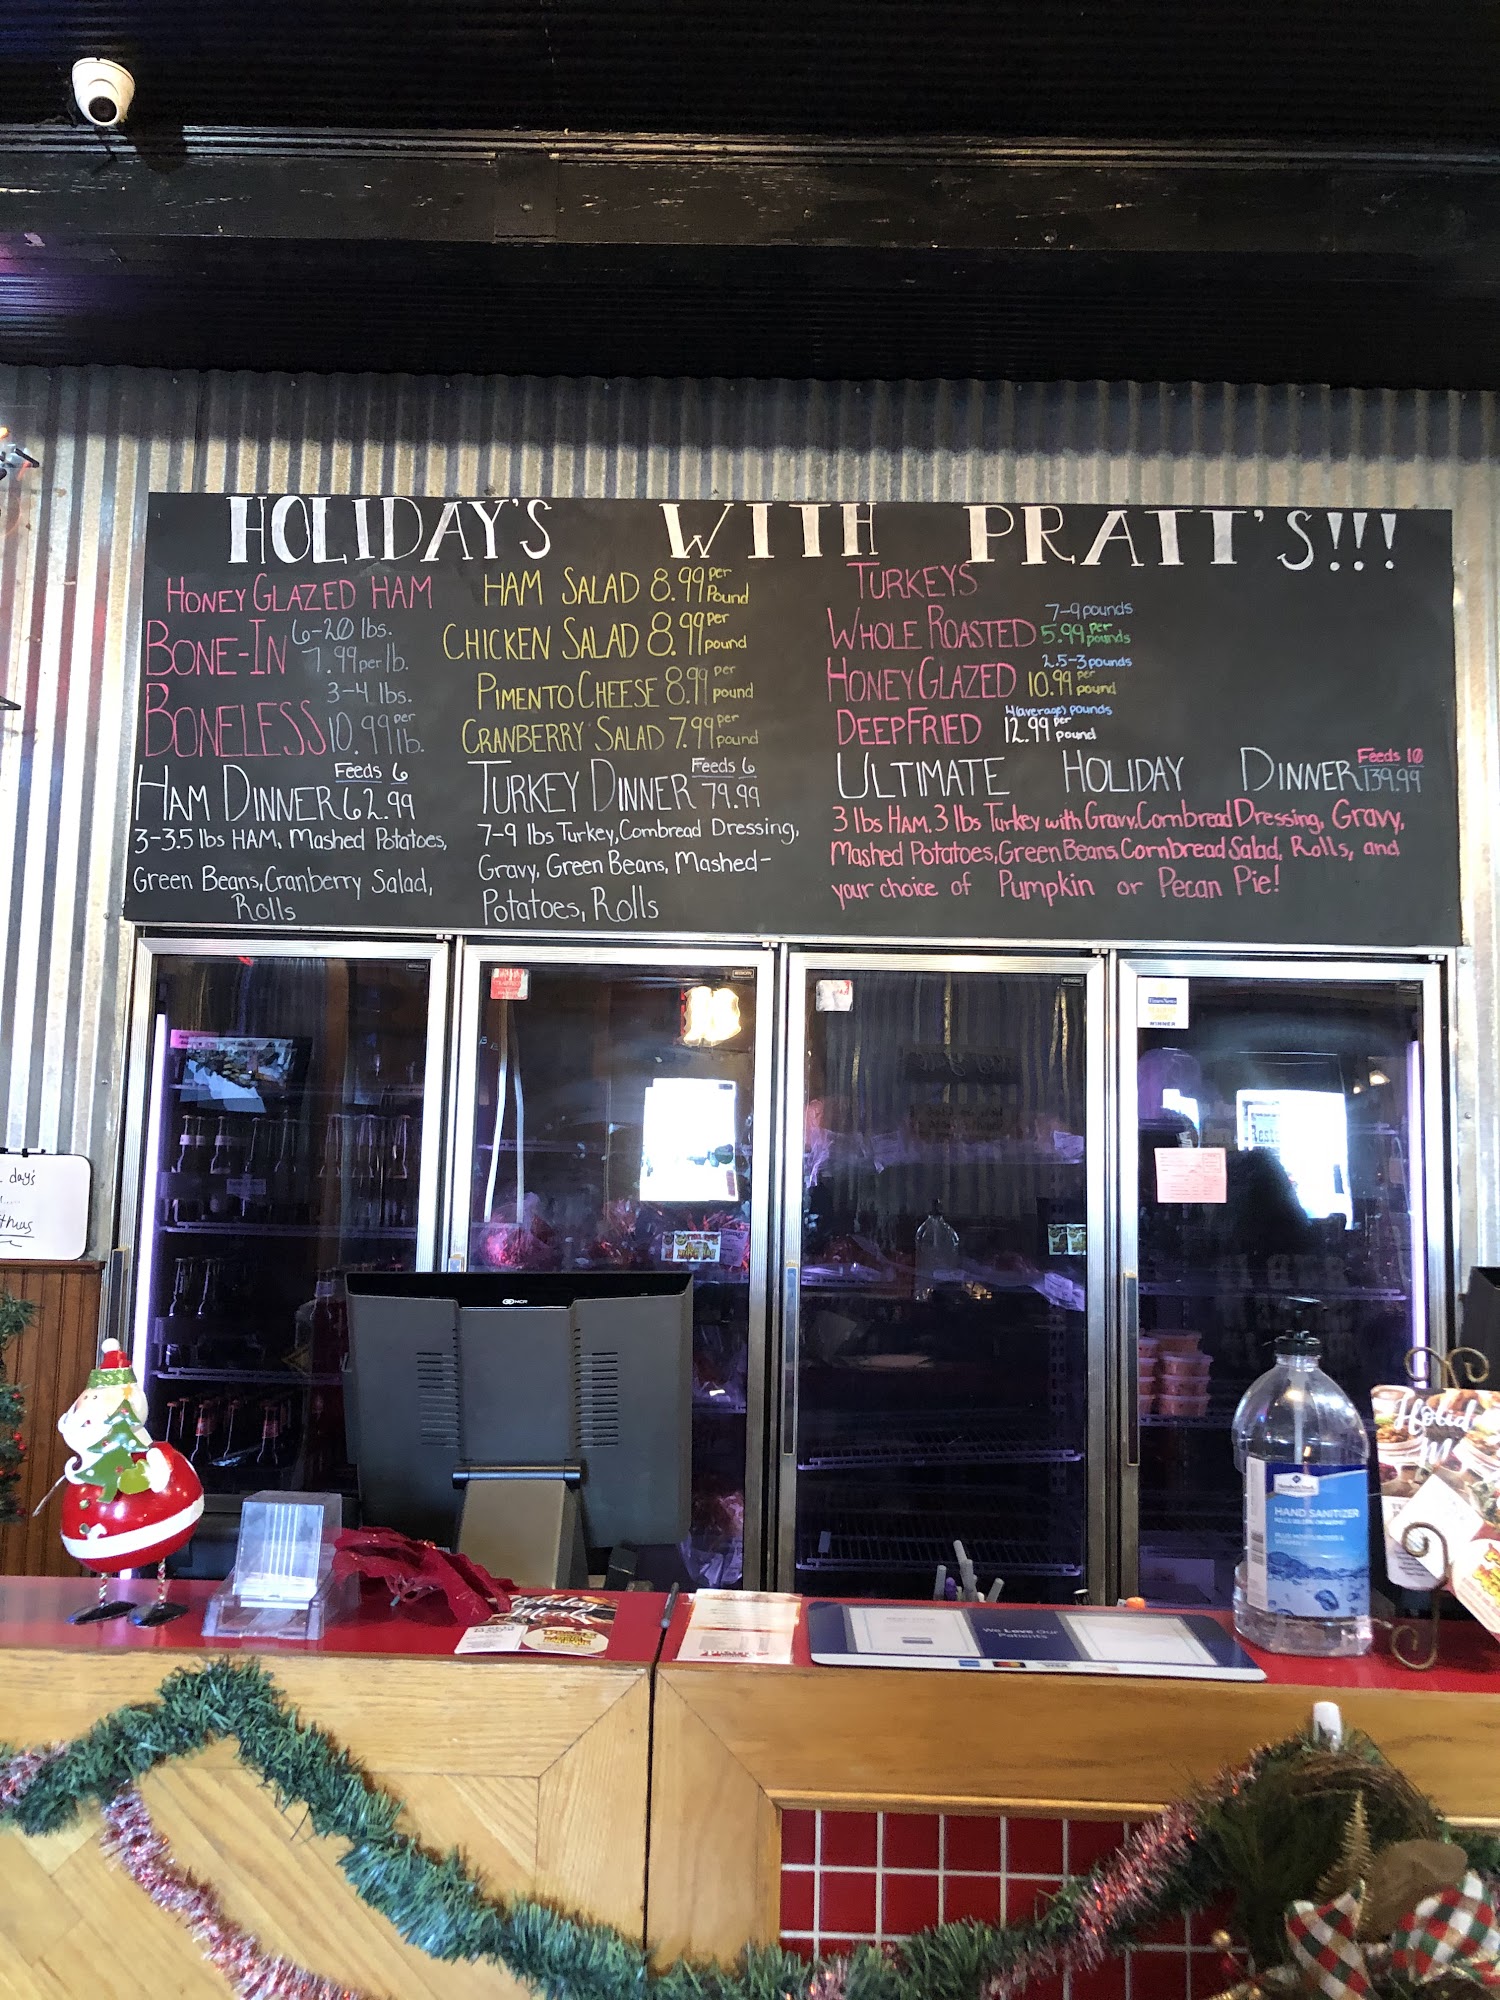 HOLIDAY'S WITH PRATT'S!!!
HONEY GLAZED HAM
BONE-IN 6-20 lbs.
7.99 per lb.
BONELESS 3-4 lbs.
10.99 per lb.
HAM DINNER Feeds 6
62.99
3-3.5 lbs HAM, Mashed Potatoes,
Green Beans, Cranberry Salad,
Rolls
HAM SALAD 8.99 per Pound
CHICKEN SALAD 8.99 per pound
PIMENTO CHEESE 8.99 per pound
CRANBERRY SALAD 7.99 per pound
TURKEY DINNER Feeds 6
79.99
7-9 lbs Turkey, Cornbread Dressing,
Gravy, Green Beans, Mashed-
Potatoes, Rolls
TURKEYS
WHOLE ROASTED 7-9 pounds
5.99 per pounds
HONEY GLAZED 2.5-3 pounds
10.99 per pound
DEEP FRIED 4(average) pounds
12.99 per pound
ULTIMATE HOLIDAY DINNER Feeds 10
139.99
3 lbs HAM. 3 lbs Turkey with Gravy, Cornbread Dressing, Gravy,
Mashed Potatoes, Green Beans, Cornbread Salad, Rolls, and
your choice of Pumpkin or Pecan Pie!
WINNER
day's
NCR
HAND SANITIZER
Holiday
Meals
We Love Our
Patients
VISA